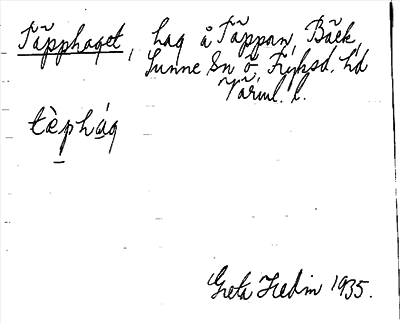 Täpphaget, hag å Täppan, Bäck,
Sunne Sn ö, Fryksd. hd
Värml. l.
tɛ̀phág
Greta Hedin 1935.